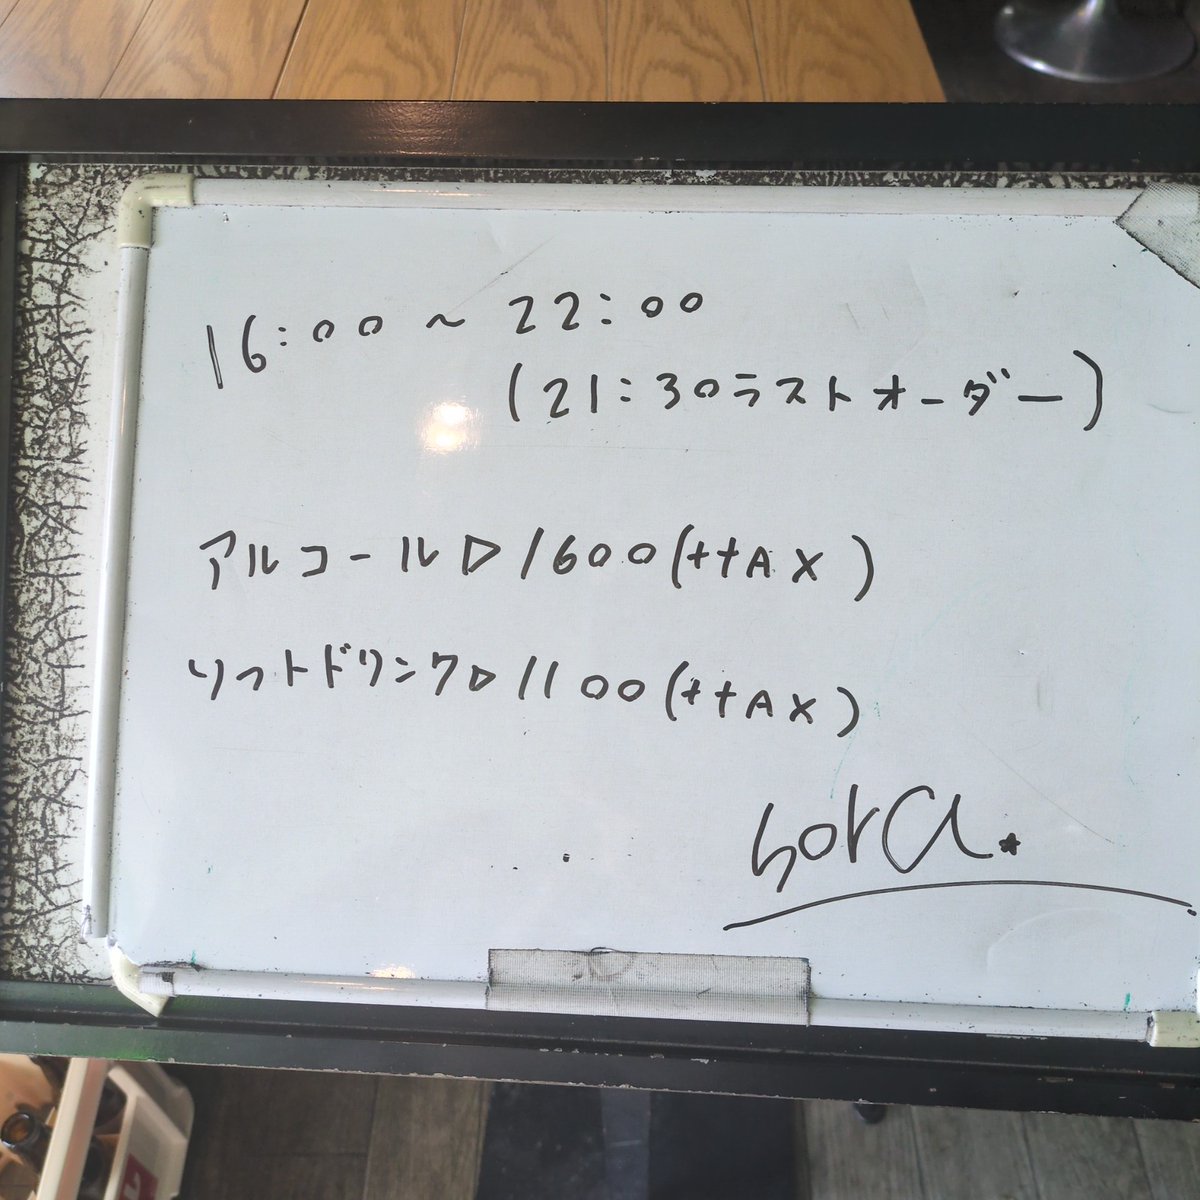 16:00 ~ 22:00
(21:30ラストオーダー)
アルコール▷1600(+tAX)
ソフトドリンク▷1100(+tAX)
sora.